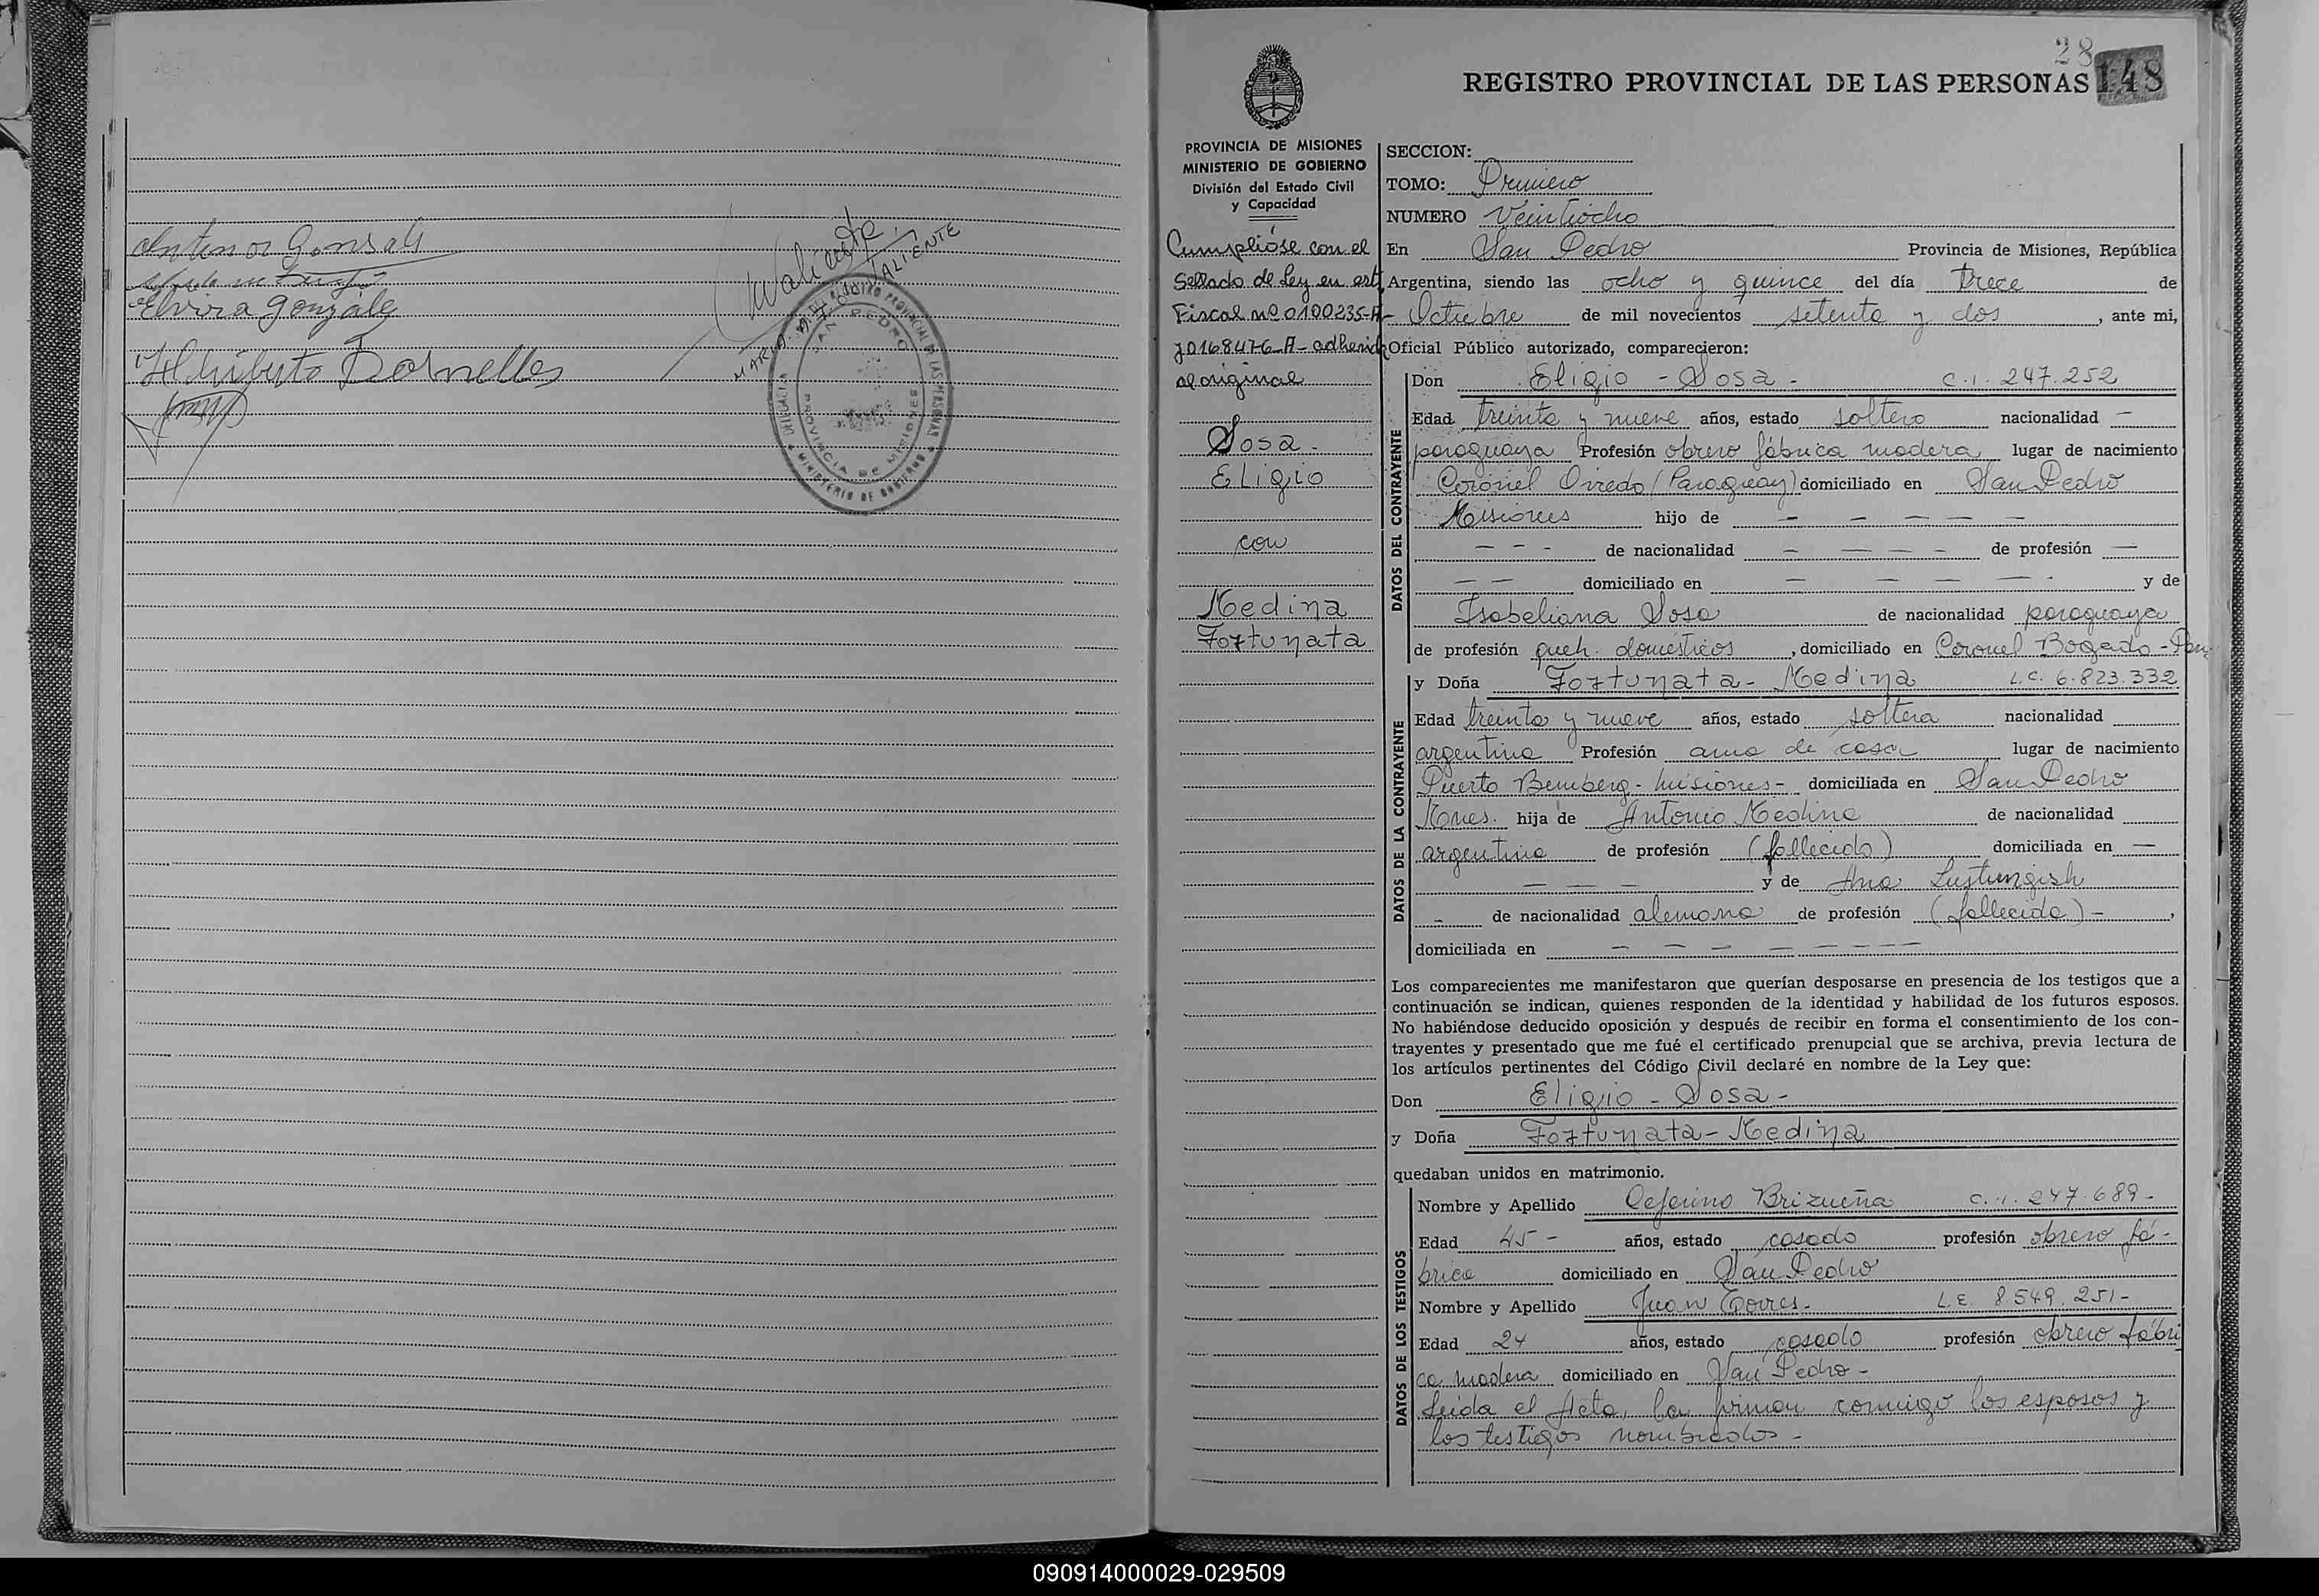 Antenor Gonsalez
Elvira González
Hilriberto Dornelles
MARIO VALIENTE
DELEGACIA
REGISTRO PROVINCIAL DE LAS PERSONAS
SAN PEDRO
PROVINCIA DE MISIONES
MINISTERIO DE GOBIERNO
28
148
REGISTRO PROVINCIAL DE LAS PERSONAS
PROVINCIA DE MISIONES
MINISTERIO DE GOBIERNO
División del Estado Civil
y Capacidad
Cumplióse con el
Sellado de Ley en est.
Fiscal nº 0100235-A-
y 0168476-A- adherid
al original
Sosa.
Eligio
con
Medina
Fortunata
SECCION:
TOMO: Primero
NUMERO Veintiocho
En San Pedro Provincia de Misiones, República
Argentina, siendo las ocho y quince del día trece de
Octubre de mil novecientos setenta y dos, ante mi,
Oficial Público autorizado, comparecieron:
DATOS DEL CONTRAYENTE
Don Eligio - Sosa - C.I. 247.252
Edad treinta y nueve años, estado soltero nacionalidad —
paraguaya Profesión obrero fábrica madera lugar de nacimiento
Coronel Oviedo (Paraguay) domiciliado en San Pedro
Misiones hijo de - - - - -
- - - de nacionalidad - - - - de profesión —
- - domiciliado en - - - - y de
Isabeliana Sosa de nacionalidad paraguaya
de profesión queh. domésticos, domiciliado en Coronel Bogado - Par.
DATOS DE LA CONTRAYENTE
y Doña Fortunata - Medina L.C. 6.823.332
Edad treinta y nueve años, estado soltera nacionalidad
argentina Profesión ama de casa lugar de nacimiento
Puerto Bemberg - Misiones - domiciliada en San Pedro
Mnes. hija de Antonio Medina de nacionalidad
argentina de profesión (fallecido) domiciliada en —
- - - y de Ana Lustungish
- de nacionalidad alemana de profesión (fallecida) -,
domiciliada en - - - - - - -
Los comparecientes me manifestaron que querían desposarse en presencia de los testigos que a
continuación se indican, quienes responden de la identidad y habilidad de los futuros esposos.
No habiéndose deducido oposición y después de recibir en forma el consentimiento de los con-
trayentes y presentado que me fué el certificado prenupcial que se archiva, previa lectura de
los artículos pertinentes del Código Civil declaré en nombre de la Ley que:
Don Eligio - Sosa -
y Doña Fortunata - Medina
quedaban unidos en matrimonio.
DATOS DE LOS TESTIGOS
Nombre y Apellido Ceferino Brizueña C.I. 247.689 -
Edad 45 - años, estado casado profesión obrero fá-
brica domiciliado en San Pedro
Nombre y Apellido Juan Torres - L.E. 8.549.251 -
Edad 24 años, estado casado profesión obrero fábri
ca madera domiciliado en San Pedro -
Leida el Acta, la firman conmigo los esposos y
los testigos nombrados -
090914000029-029509